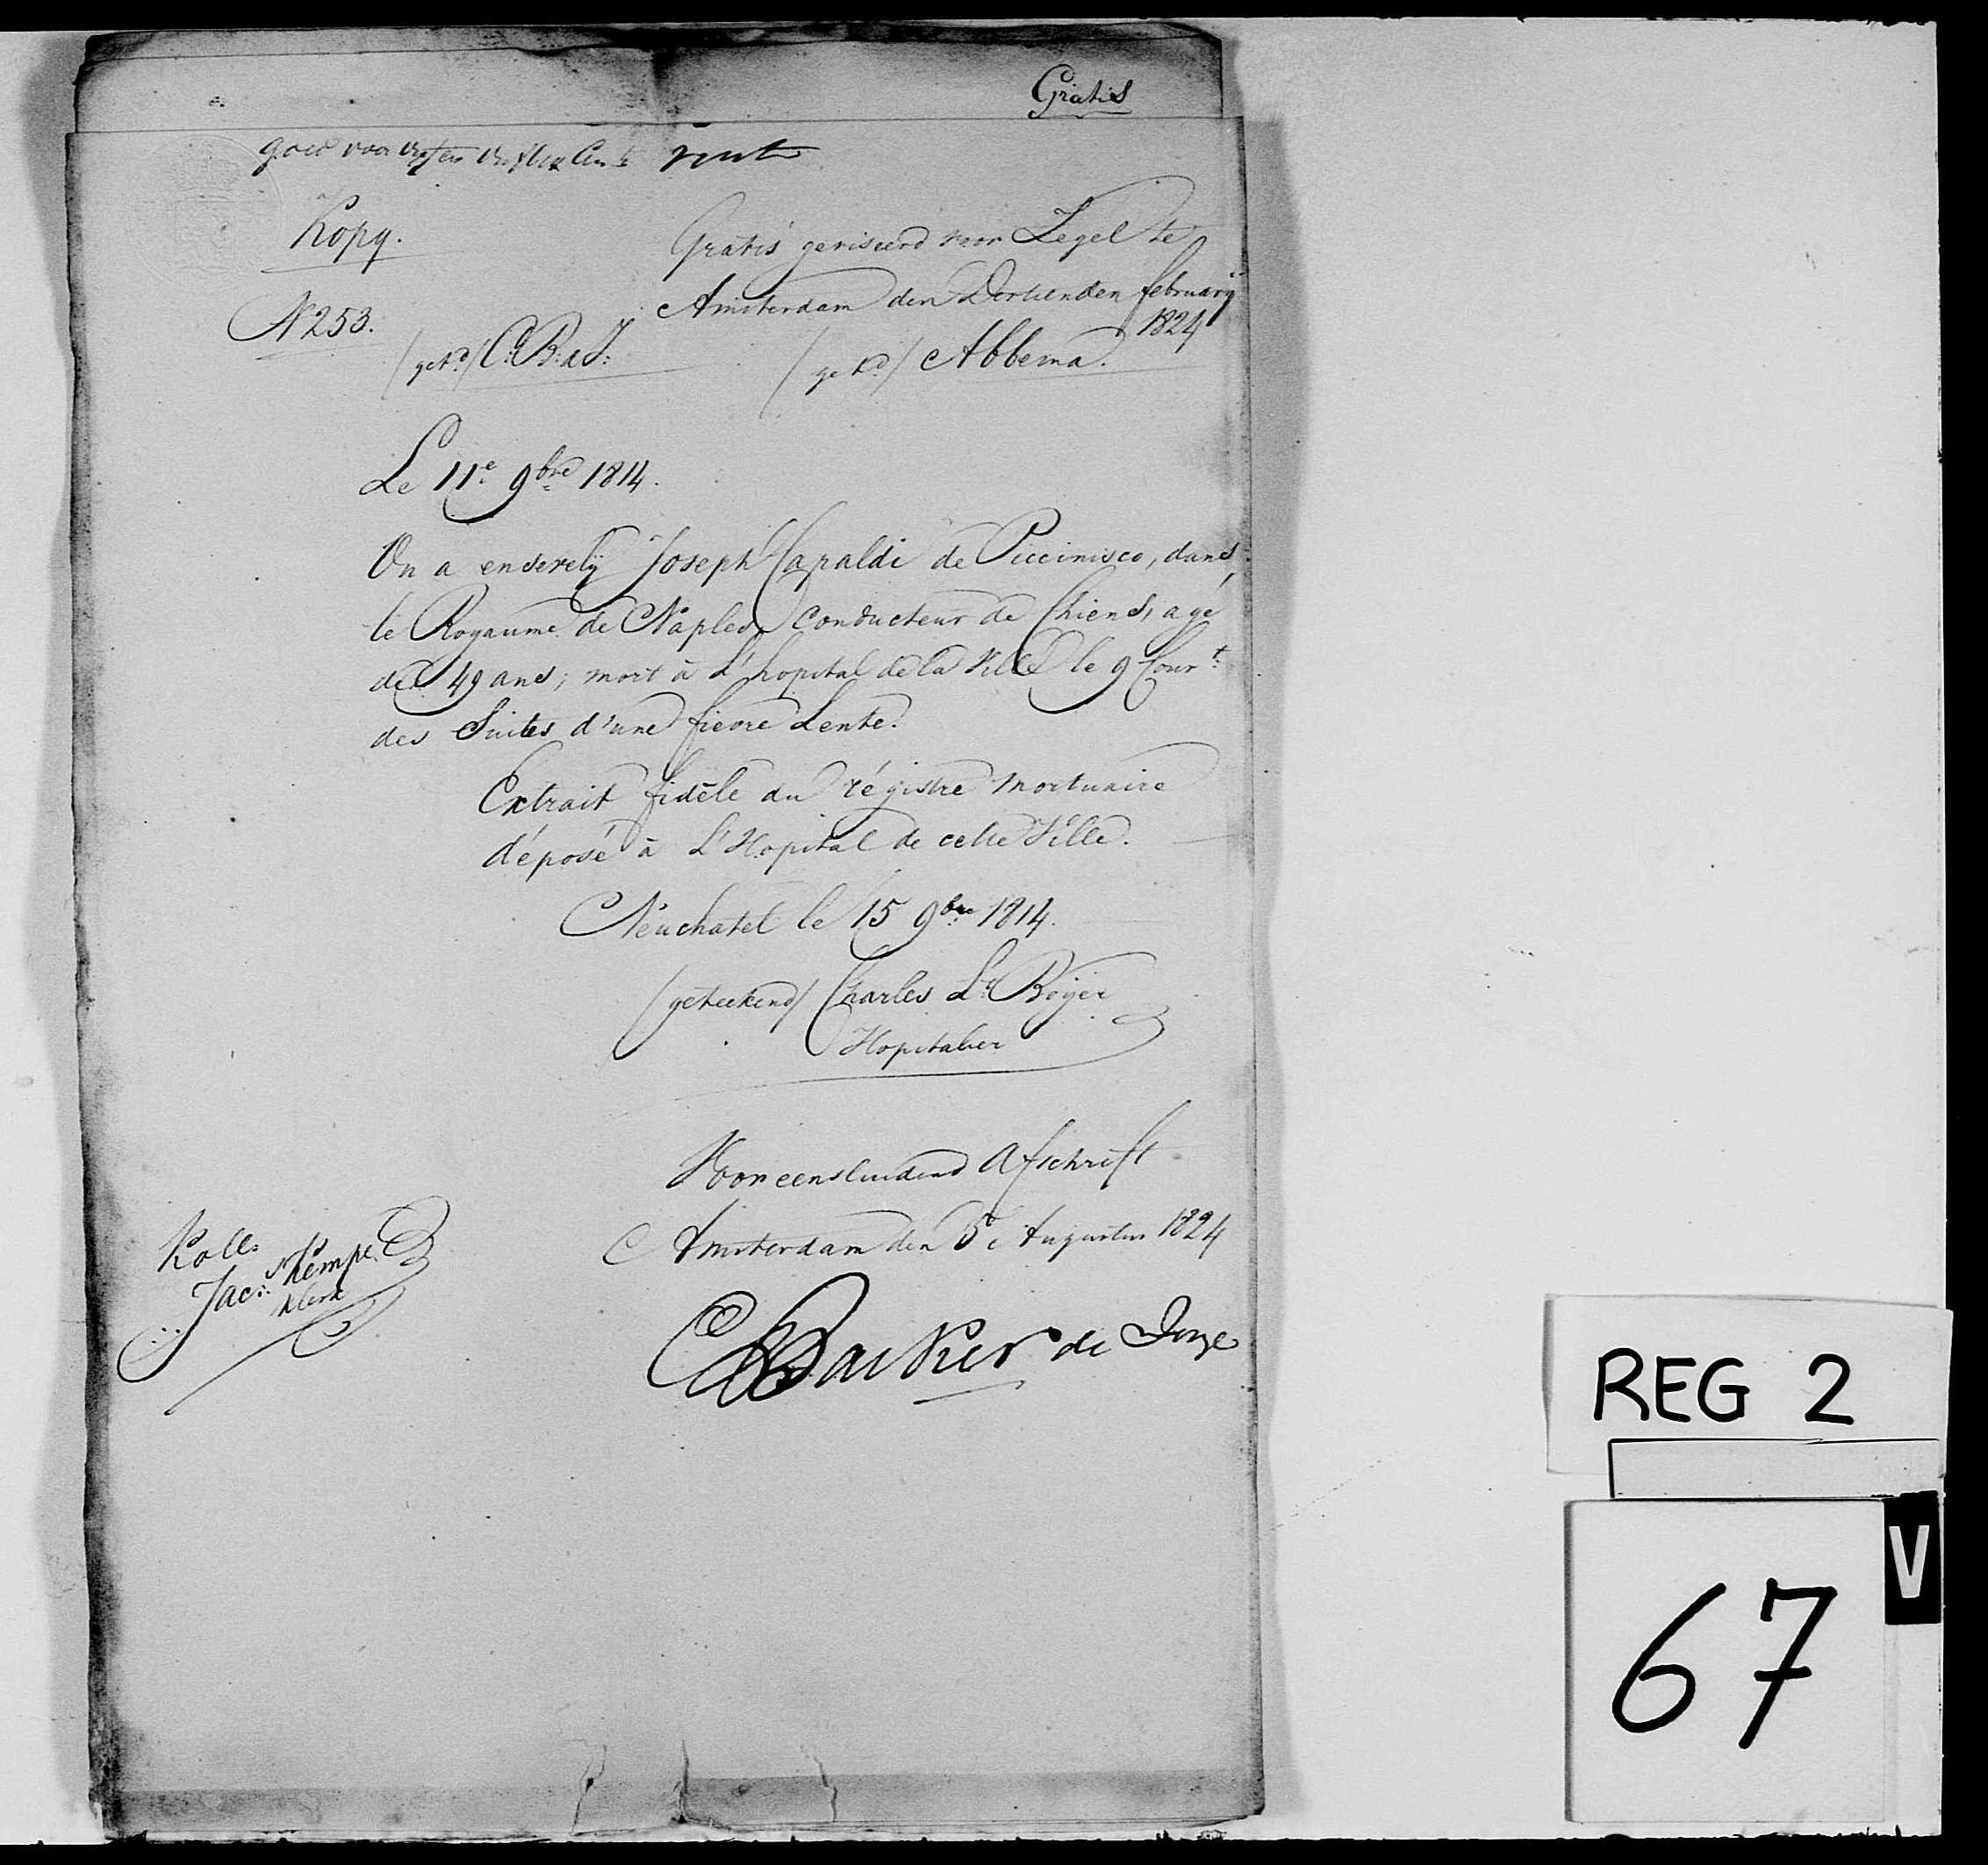 Gratis
goed voor
Kopy.
Gratis geviseerd voor Zegel te
Amsterdam den Dertienden februarij
1824
N 253.
(getd.) C: B: a J:
(getd) Abbema.
Le 11e 9bre 1814.
On a enserely Joseph Capaldi de Piccinisco, dans
le Royaume de Naples, Conducteur de Chiens, agé
de 49 ans; mort à L'hopital de la Ville le 9 Court.
des Suites d'une fievre Lente.
Extrait fidèle du régistre mortuaire
déposé à L'Hopital de cette Ville.
Neuchatel le 15 9bre 1814.
(geteekend) Charles Ls. Boyer
Hopitalier
Voor eensluidend Afschrift
Amsterdam den 5e Augustus 1824
Koll.
Jac:s Kemper
Klerk
Bakker de Jonge
REG 2
67
V